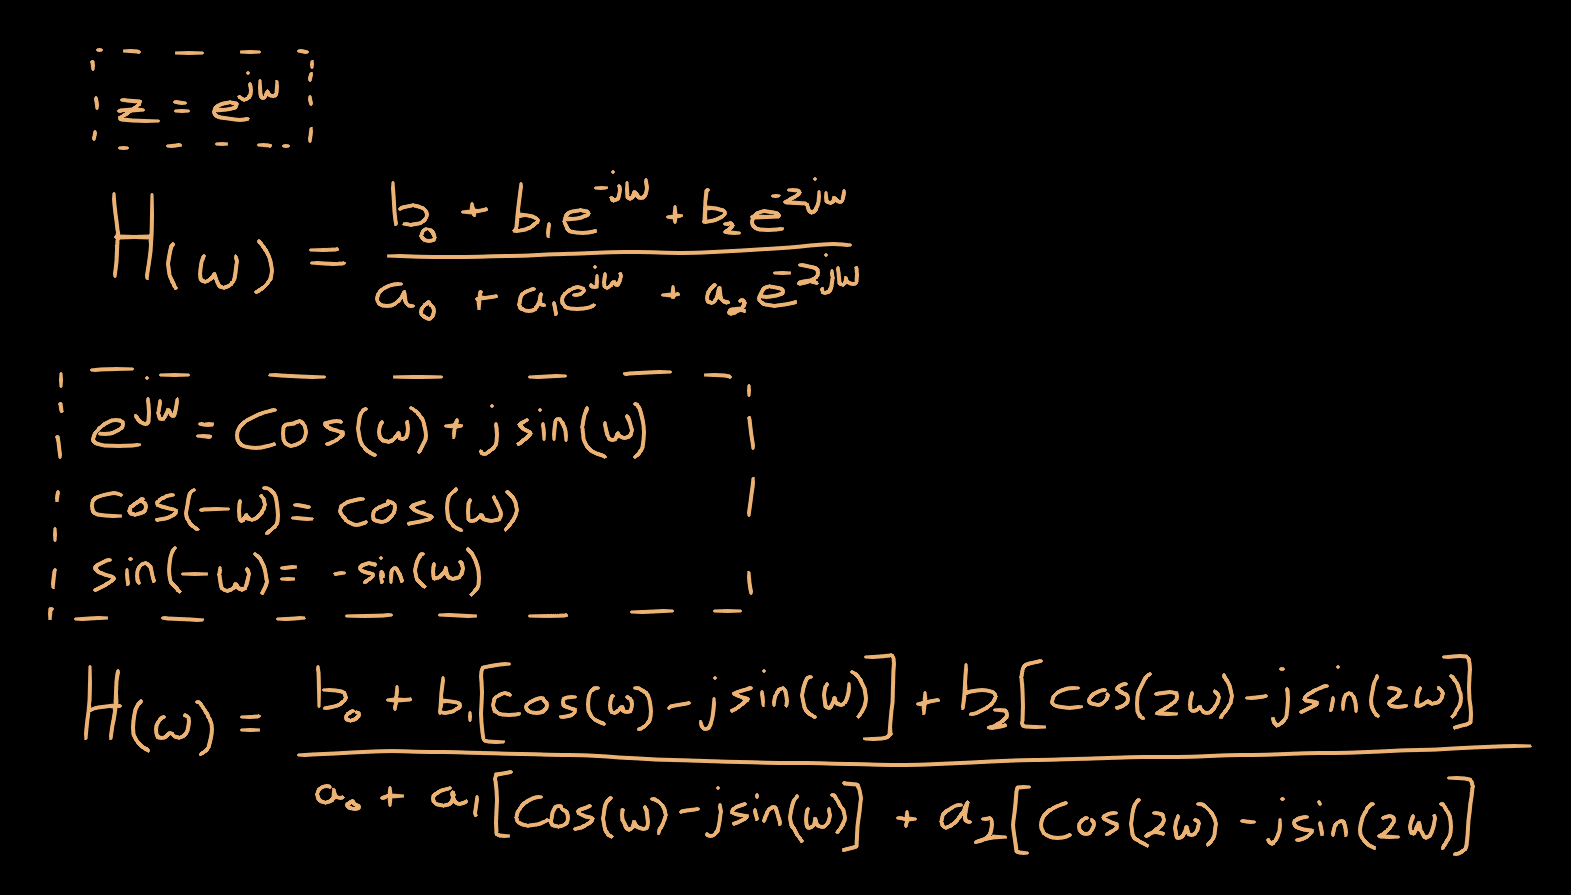 z = e^{jω}
H(ω) = \frac{b_0 + b_1 e^{-jω} + b_2 e^{-2jω}}{a_0 + a_1 e^{jω} + a_2 e^{-2jω}}
e^{jω} = cos(ω) + j sin(ω)
cos(-ω) = cos(ω)
sin(-ω) = -sin(ω)
H(ω) = \frac{b_0 + b_1[cos(ω) - j sin(ω)] + b_2[cos(2ω) - j sin(2ω)]}{a_0 + a_1[cos(ω) - j sin(ω)] + a_2[cos(2ω) - j sin(2ω)]}